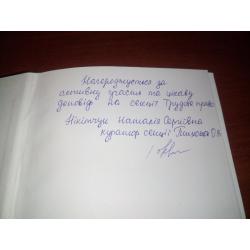 Нагороджується за
активну участь та цікаву
доповідь на секції Трудове право
Нікітчук Наталія Сергіївна
куратор секції